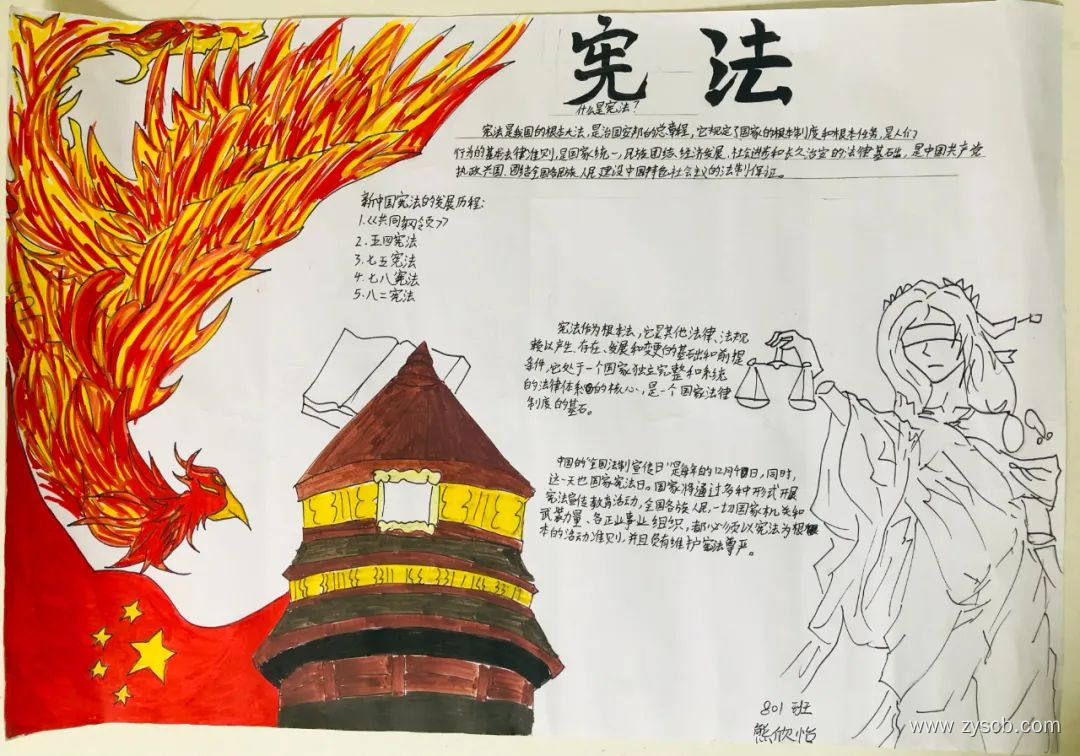 宪 法
什么是宪法?
宪法是我国的根本大法,是治国安邦的总章程,它规定了国家的根本制度和根本任务,是人们
行为的基本法律准则,是国家统一、民族团结、经济发展、社会进步和长久治安的法律基础,是中国共产党
执政兴国、团结全国各民族人民建设中国特色社会主义的法制保证。
新中国宪法的发展历程:
1.《共同纲领》
2.五四宪法
3.七五宪法
4.七八宪法
5.八二宪法
宪法作为根本法,它是其他法律、法规
赖以产生、存在、发展和变更的基础和前提
条件,它处于一个国家独立完整和系统
的法律体系的核心,是一个国家法律
制度的基石。
中国的"全国法制宣传日"是每年的12月4日,同时,
这一天也国家宪法日。国家将通过多种形式开展
宪法宣传教育活动,全国各族人民,一切国家机关和
武装力量、各正业事业组织,都必须以宪法为根
本的活动准则,并且负有维护宪法尊严。
801 班
熊欣怡
www.zysob.com